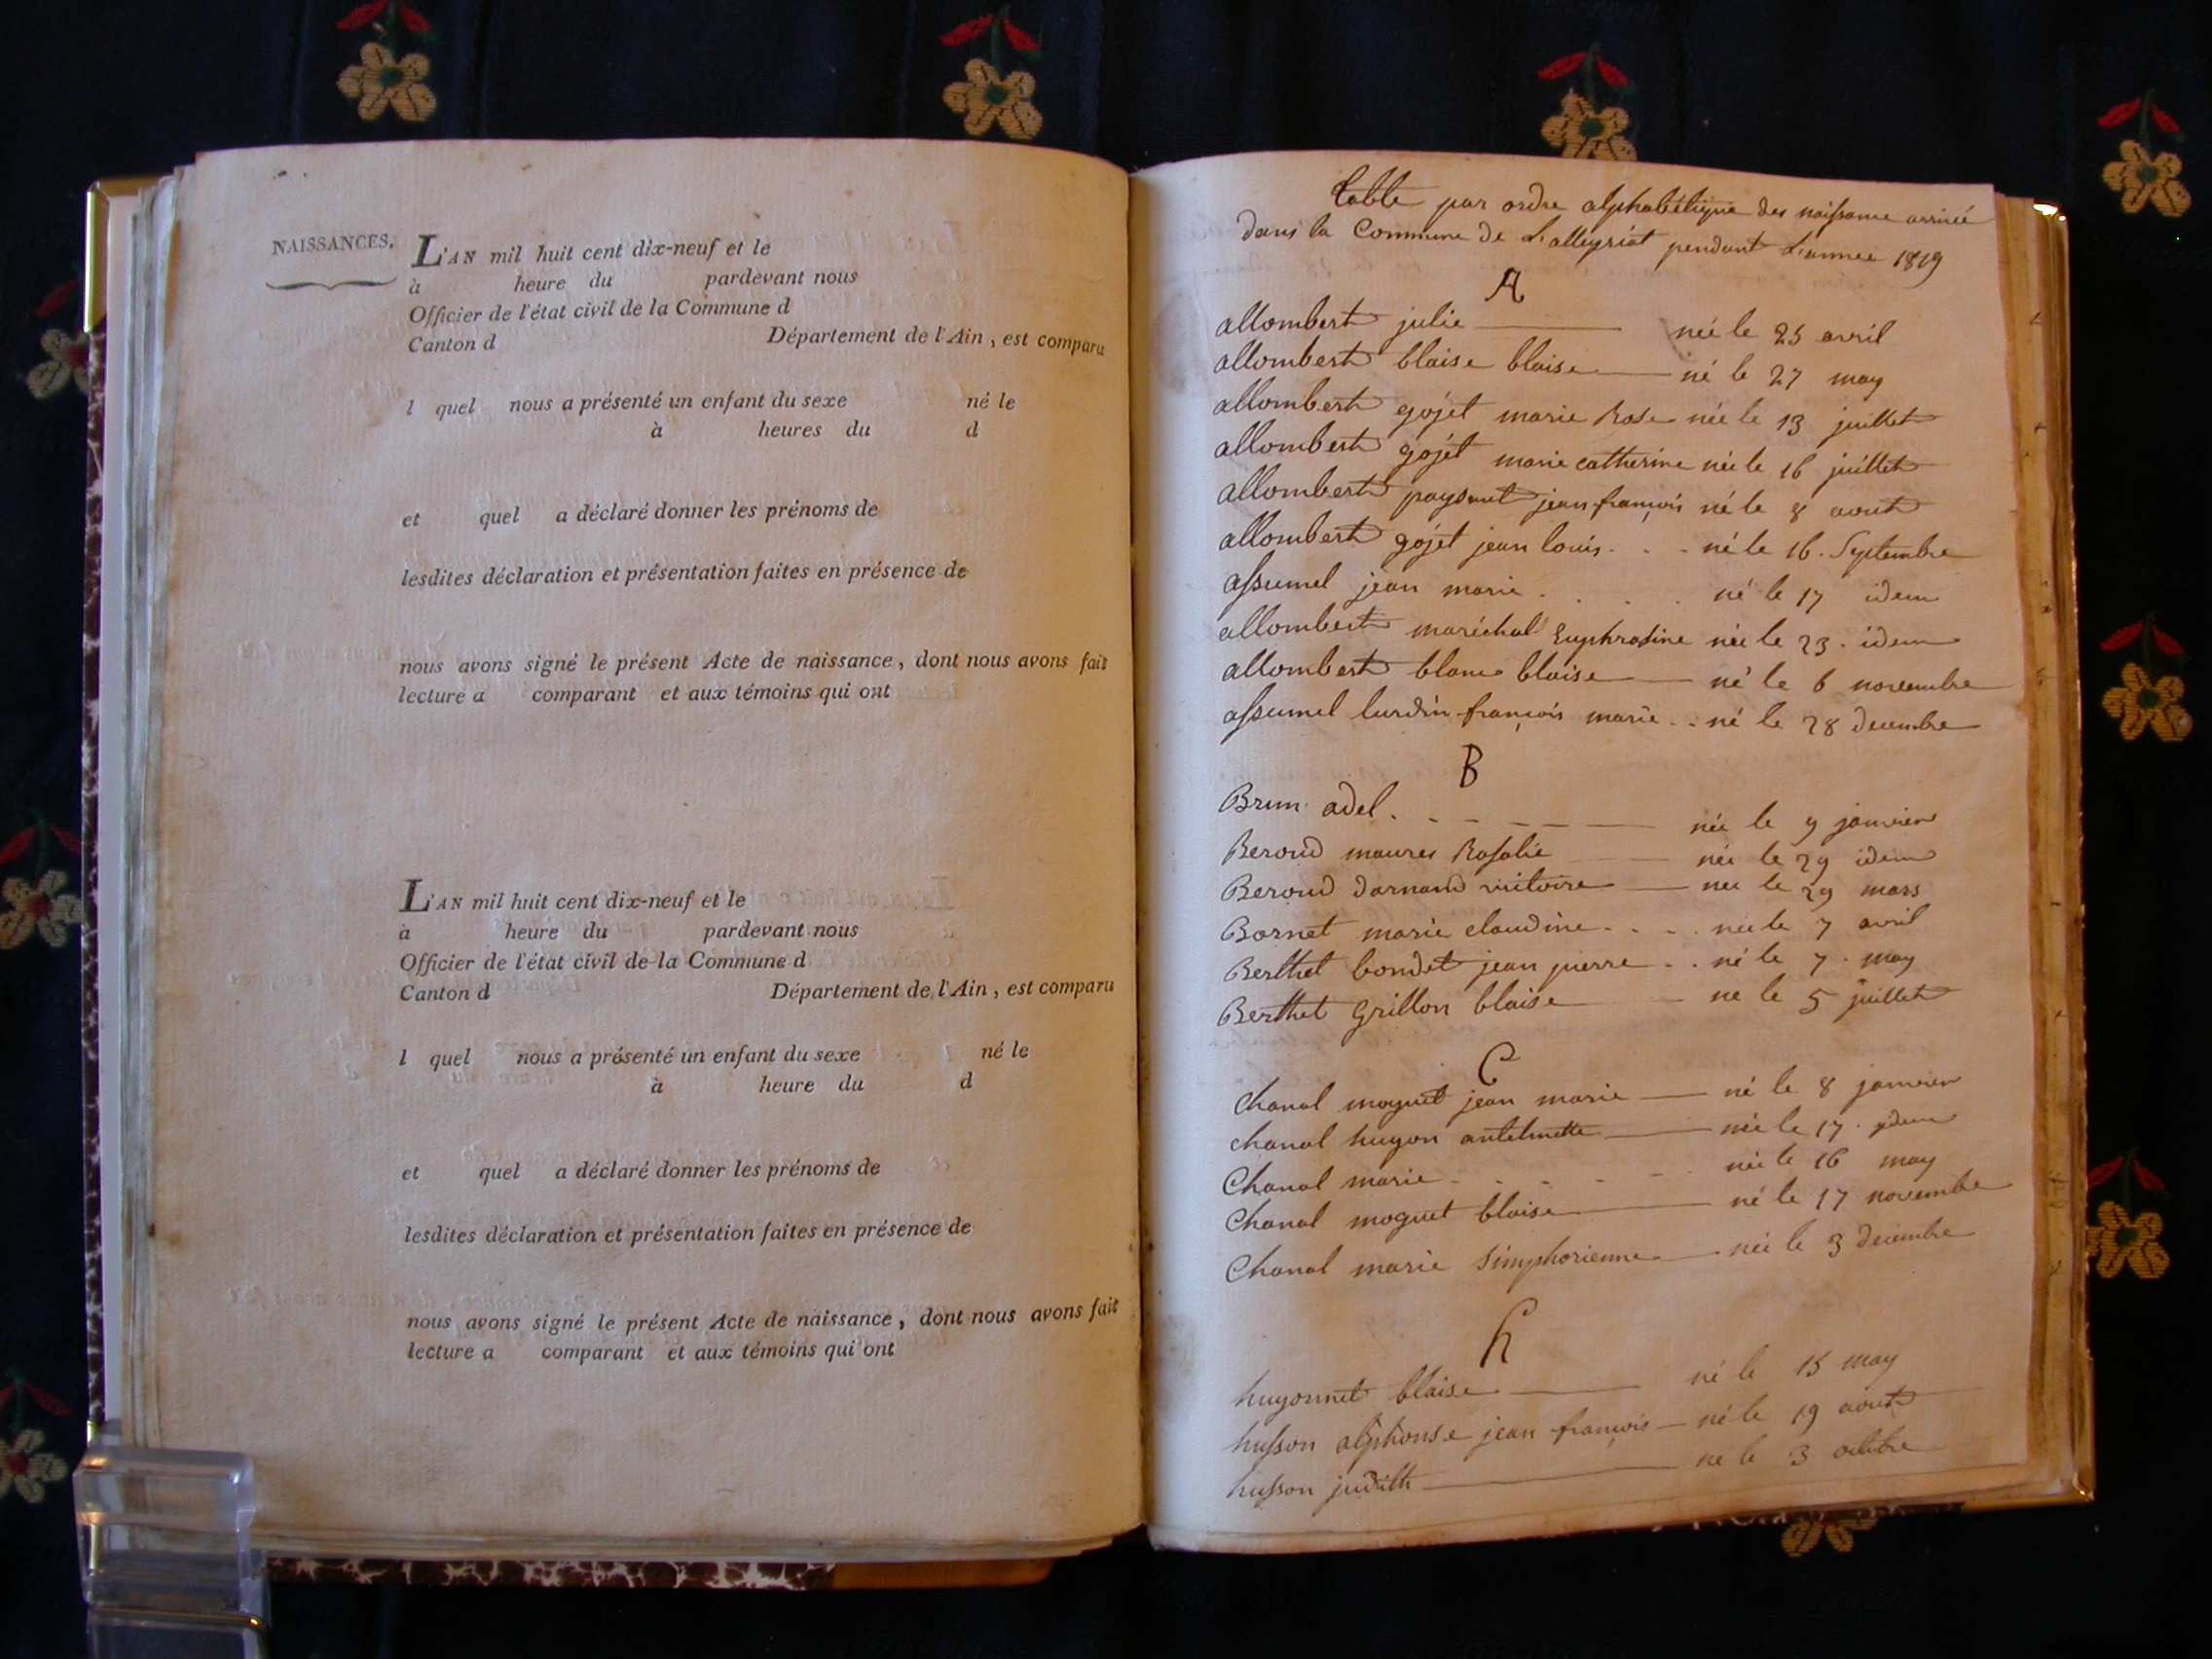 NAISSANCES.
L'AN mil huit cent dix-neuf et le
à heure du pardevant nous
Officier de l'état civil de la Commune d
Canton d Département de l'Ain, est comparu
l quel nous a présenté un enfant du sexe né le
à heures du d
et quel a déclaré donner les prénoms de
lesdites déclaration et présentation faites en présence de
nous avons signé le présent Acte de naissance, dont nous avons fait
lecture a comparant et aux témoins qui ont
L'AN mil huit cent dix-neuf et le
à heure du pardevant nous
Officier de l'état civil de la Commune d
Canton d Département de l'Ain, est comparu
l quel nous a présenté un enfant du sexe né le
à heure du d
et quel a déclaré donner les prénoms de
lesdites déclaration et présentation faites en présence de
nous avons signé le présent Acte de naissance, dont nous avons fait
lecture a comparant et aux témoins qui ont
table par ordre alphabétique des naissance arrivée
dans la Commune de Lalleyriat pendant L'annee 1819
A
allombert julie née le 25 avril
allombert blaise blaise né le 27 may
allombert gojet marie Rose née le 13 juillet
allombert gojet marie catherine née le 16 juillet
allombert jean françois né le 8 aout
allombert gojet jean louis né le 16 Septembre
assumel jean marie né le 17 idem
allombert maréchal Euphrosine née le 23 idem
allombert blanc blaise né le 6 novembre
assumel lurdin françois marie né le 28 decembre
B
Brun adel née le 9 janvier
Beroud maures Rosalie née le 29 idem
Beroud darnand victoire née le 29 mars
Bornet marie claudine née le 7 avril
Berthet bondet jean pierre né le 7 may
Berthet Grillon blaise ne le 5 juillet
C
Chanal moguet jean marie né le 8 janvier
chanal hugon antelmette née le 17 idem
Chanal marie née le 16 may
Chanal moguet blaise né le 17 novembre
Chanal marie Simphorienne née le 3 decembre
h
hugonnet blaise né le 15 may
husson alphonse jean françois né le 19 aout
husson judith ne le 3 octobre